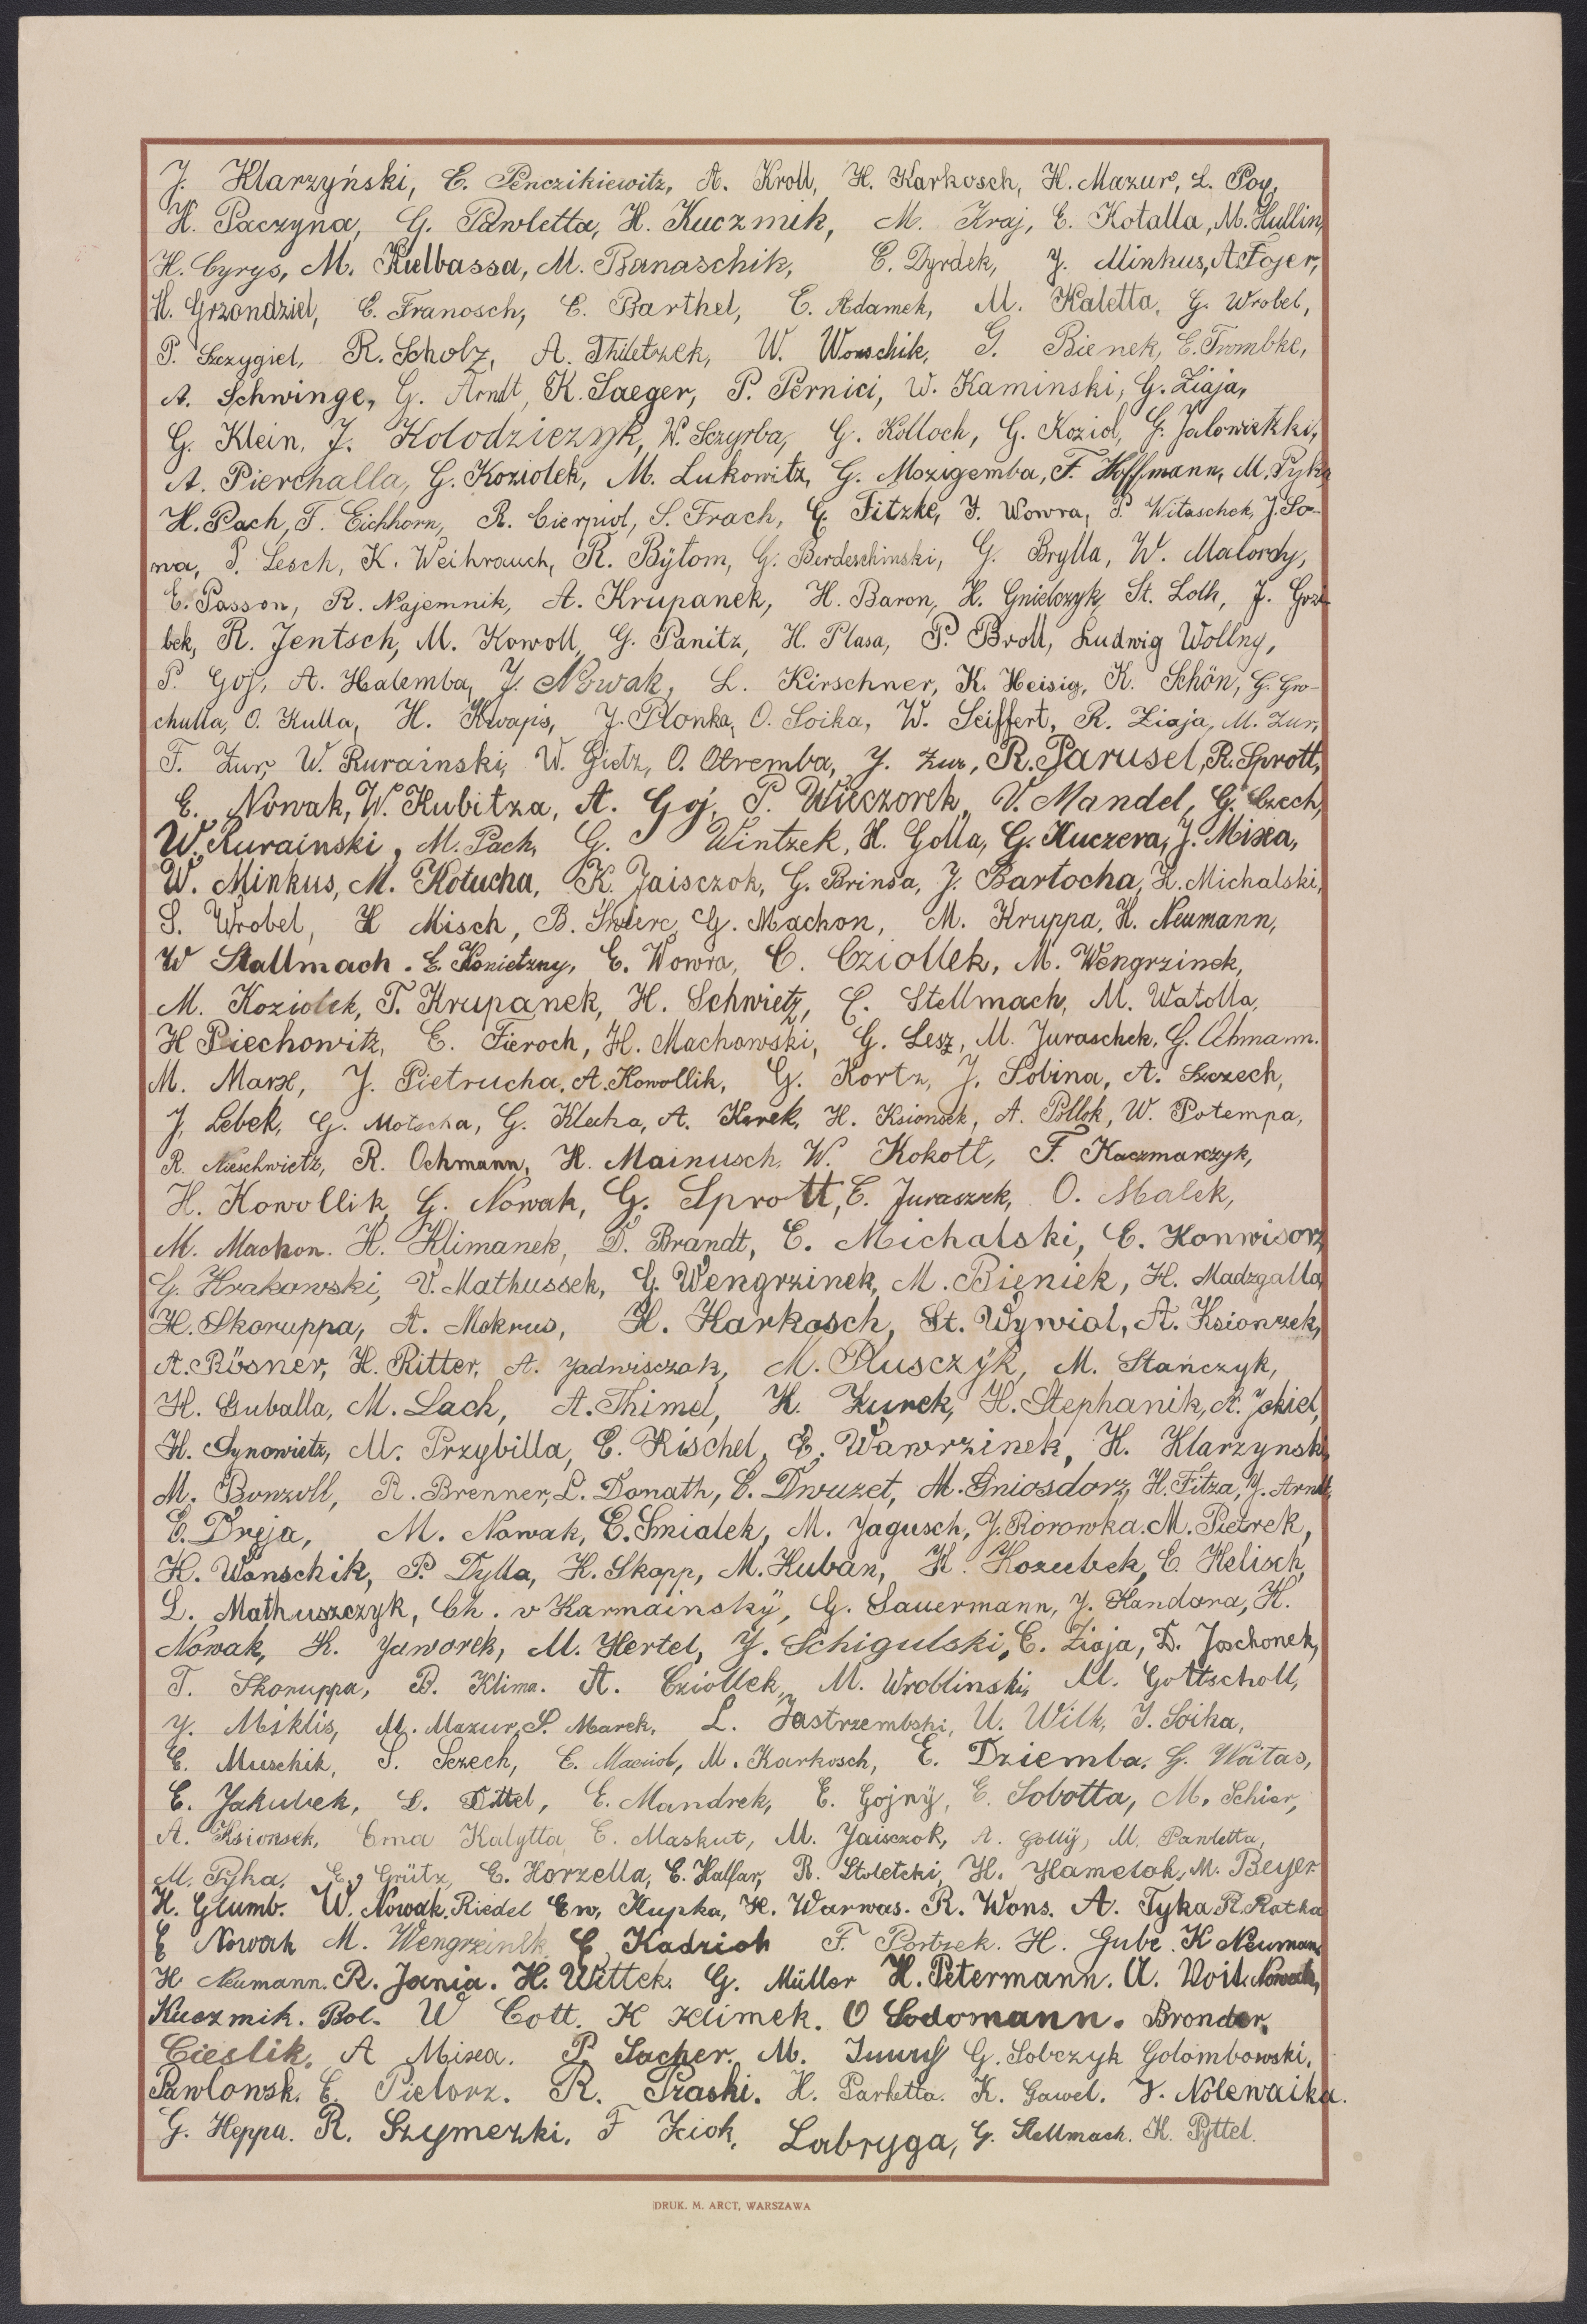 J. Klarzyński, E. Penczikiewitz, A. Kroll, H. Karkosch, H. Mazur, L. Poy,
H. Paczyna, G. Pawletta, H. Kuczmik, M. Kraj, E. Kotalla, M. Hullin,
H. Cyrys, M. Kielbassa, M. Banaschik, E. Dyrdek, J. Minkus, A. Fojer,
H. Grzondziel, E. Franosch, E. Barthel, E. Adamek, M. Kaletta, G. Wrobel,
P. Szczygiel, R. Scholz, A. Thiletzek, W. Wonschik, G. Bienek, E. Trombke,
A. Schwinge, G. Arndt, K. Saeger, P. Pernici, W. Kaminski, G. Ziaja,
G. Klein, J. Kolodziezyk, W. Sczyrba, G. Kolloch, G. Koziol, G. Jalowietzki,
A. Pierchalla, G. Koziolek, M. Lukowitz, G. Mozigemba, F. Hoffmann, M. Pyka
H. Pach, F. Eichhorn, R. Cierpiol, S. Frach, G. Fitzke, J. Wowra, P. Witaschek, J. So-
wa, P. Lesch, K. Weihrauch, R. Bÿtom, G. Berdeschinski, G. Brylla, W. Malordy,
E. Passon, R. Najemnik, A. Krupanek, H. Baron, H. Gnielczyk, St. Loth, J. Grzi-
bek, R. Jentsch, M. Kowoll, G. Panitz, H. Plasa, P. Broll, Ludwig Wollny,
P. Goj, A. Halemba, J. Nowak, L. Kirschner, K. Heisig, K. Schön, G. Gro-
chulla, O. Kulla, H. Kwapis, J. Plonka, O. Soika, W. Seiffert, R. Ziaja, M. Zur,
F. Zur, W. Rurainski, W. Gietz, O. Otremba, J. Zur, R. Parusel, R. Sprott,
E. Nowak, W. Kubitza, A. Goj, P. Wieczorek, V. Mandel, G. Czech,
W. Rurainski, M. Pach, G. Wintzek, H. Golla, G. Kuczera, J. Mixa,
W. Minkus, M. Kotucha, K. Jaisczok, G. Brinsa, J. Bartocha, H. Michalski,
S. Wrobel, H Misch, B. Swierc, G. Machon, M. Kruppa, H. Neumann,
W Stallmach. E. Konietzny, E. Wowra, C. Cziollek, M. Wengrzinek,
M. Koziolek, T. Krupanek, H. Schwietz, C. Stellmach, M. Watolla,
H Piechowitz, E. Fieroch, H. Machowski, G. Lesz, M. Juraschek, G. Ohmann.
M. Marx, J. Pietrucha, A. Kowollik, G. Kortz, J. Sobina, A. Szczech,
J. Lebek, G. Motscha, G. Klecha, A. Korek, H. Ksionsek, A. Pollok, W. Potempa,
R. Nieschwietz, R. Ochmann, H. Mainusch, W. Kokott, F. Kaczmarczyk,
H. Kowollik, G. Nowak, G. Sprott, E. Juraszek, O. Malek,
M. Machon. H. Klimanek, D. Brandt, E. Michalski, E. Konwisorz
G. Krakowski, V. Mathussek, G. Wengrzinek, M. Bieniek, H. Madzgalla,
H. Skoruppa, A. Mokrus, H. Karkosch, St. Wywiol, A. Ksionzek,
A. Rösner, H. Ritter, A. Jadwisczok, M. Plusczÿk, M. Stańczyk,
H. Guballa, M. Lach, A. Thimel, K. Zurek, H. Stephanik, A. Jokiel,
H. Synowietz, M. Przybilla, E. Kischel, E. Wawrzinek, H. Klarzynski
M. Bonzoll, R. Brenner, L. Donath, E. Dwuzet, M. Gniosdorz, H. Fitza, J. Arndt,
E. Dreja, M. Nowak, E. Smialek, M. Jagusch, J. Rorowka. M. Pietrek,
H. Wonschik, P. Dylla, H. Skopp, M. Kuban, K. Kozubek, E. Helisch,
L. Mathuszczyk, Ch. v Karmainskÿ, G. Sauermann, J. Kandora, H.
Nowak, K. Jaworek, M. Hertel, J. Schigulski, C. Ziaja, D. Joschonek,
T. Skoruppa, B. Klima. A. Cziollek, M. Wroblinski, M. Gottscholl,
J. Miklis, M. Mazur, S. Marek, L. Jastrzembski, U. Wilk, J. Soika,
E. Muschik, S. Sczech, E. Maciol, M. Karkosch, E. Dziemba, G. Woitas,
E. Jakubek, L. Dittel, E. Mandrek, E. Gojnÿ, E. Sobotta, M. Schier,
A. Ksionsek, Erna Kalytta, E. Maskut, M. Jaisczok, A. Gollÿ, M. Pawletta,
M. Pyka, E. Grütz, E. Korzella, E. Halfar, R. Stoletzki, H. Hamelok, M. Beyer
H. Glumb. W. Nowak, Riedel Ew, Kupka, H. Warwas. R. Wons. A. Tyka R. Rotha
E Nowak M. Wengrzinek, E. Kadzioh F. Portzek. H. Gube. K Neumann
H Neumann. R. Jania. H. Wittek. G. Müller H. Petermann. A. Voit. Nowak,
Kuczmik. Bol. W Cott. K Klimek. O Sodomann. Bronder.
Cieslik. A Mixa. P. Sacher. M. G. Sobczyk Golombowski,
Pawlonsk. E. Pielorz. R. Praski. H. Parlietta. K. Gawel. V. Nolewaika.
G. Heppa. R. Szymezki. F Kiok. Labryga, G. Stellmach. K. Pyttel.
DRUK. M. ARCT, WARSZAWA